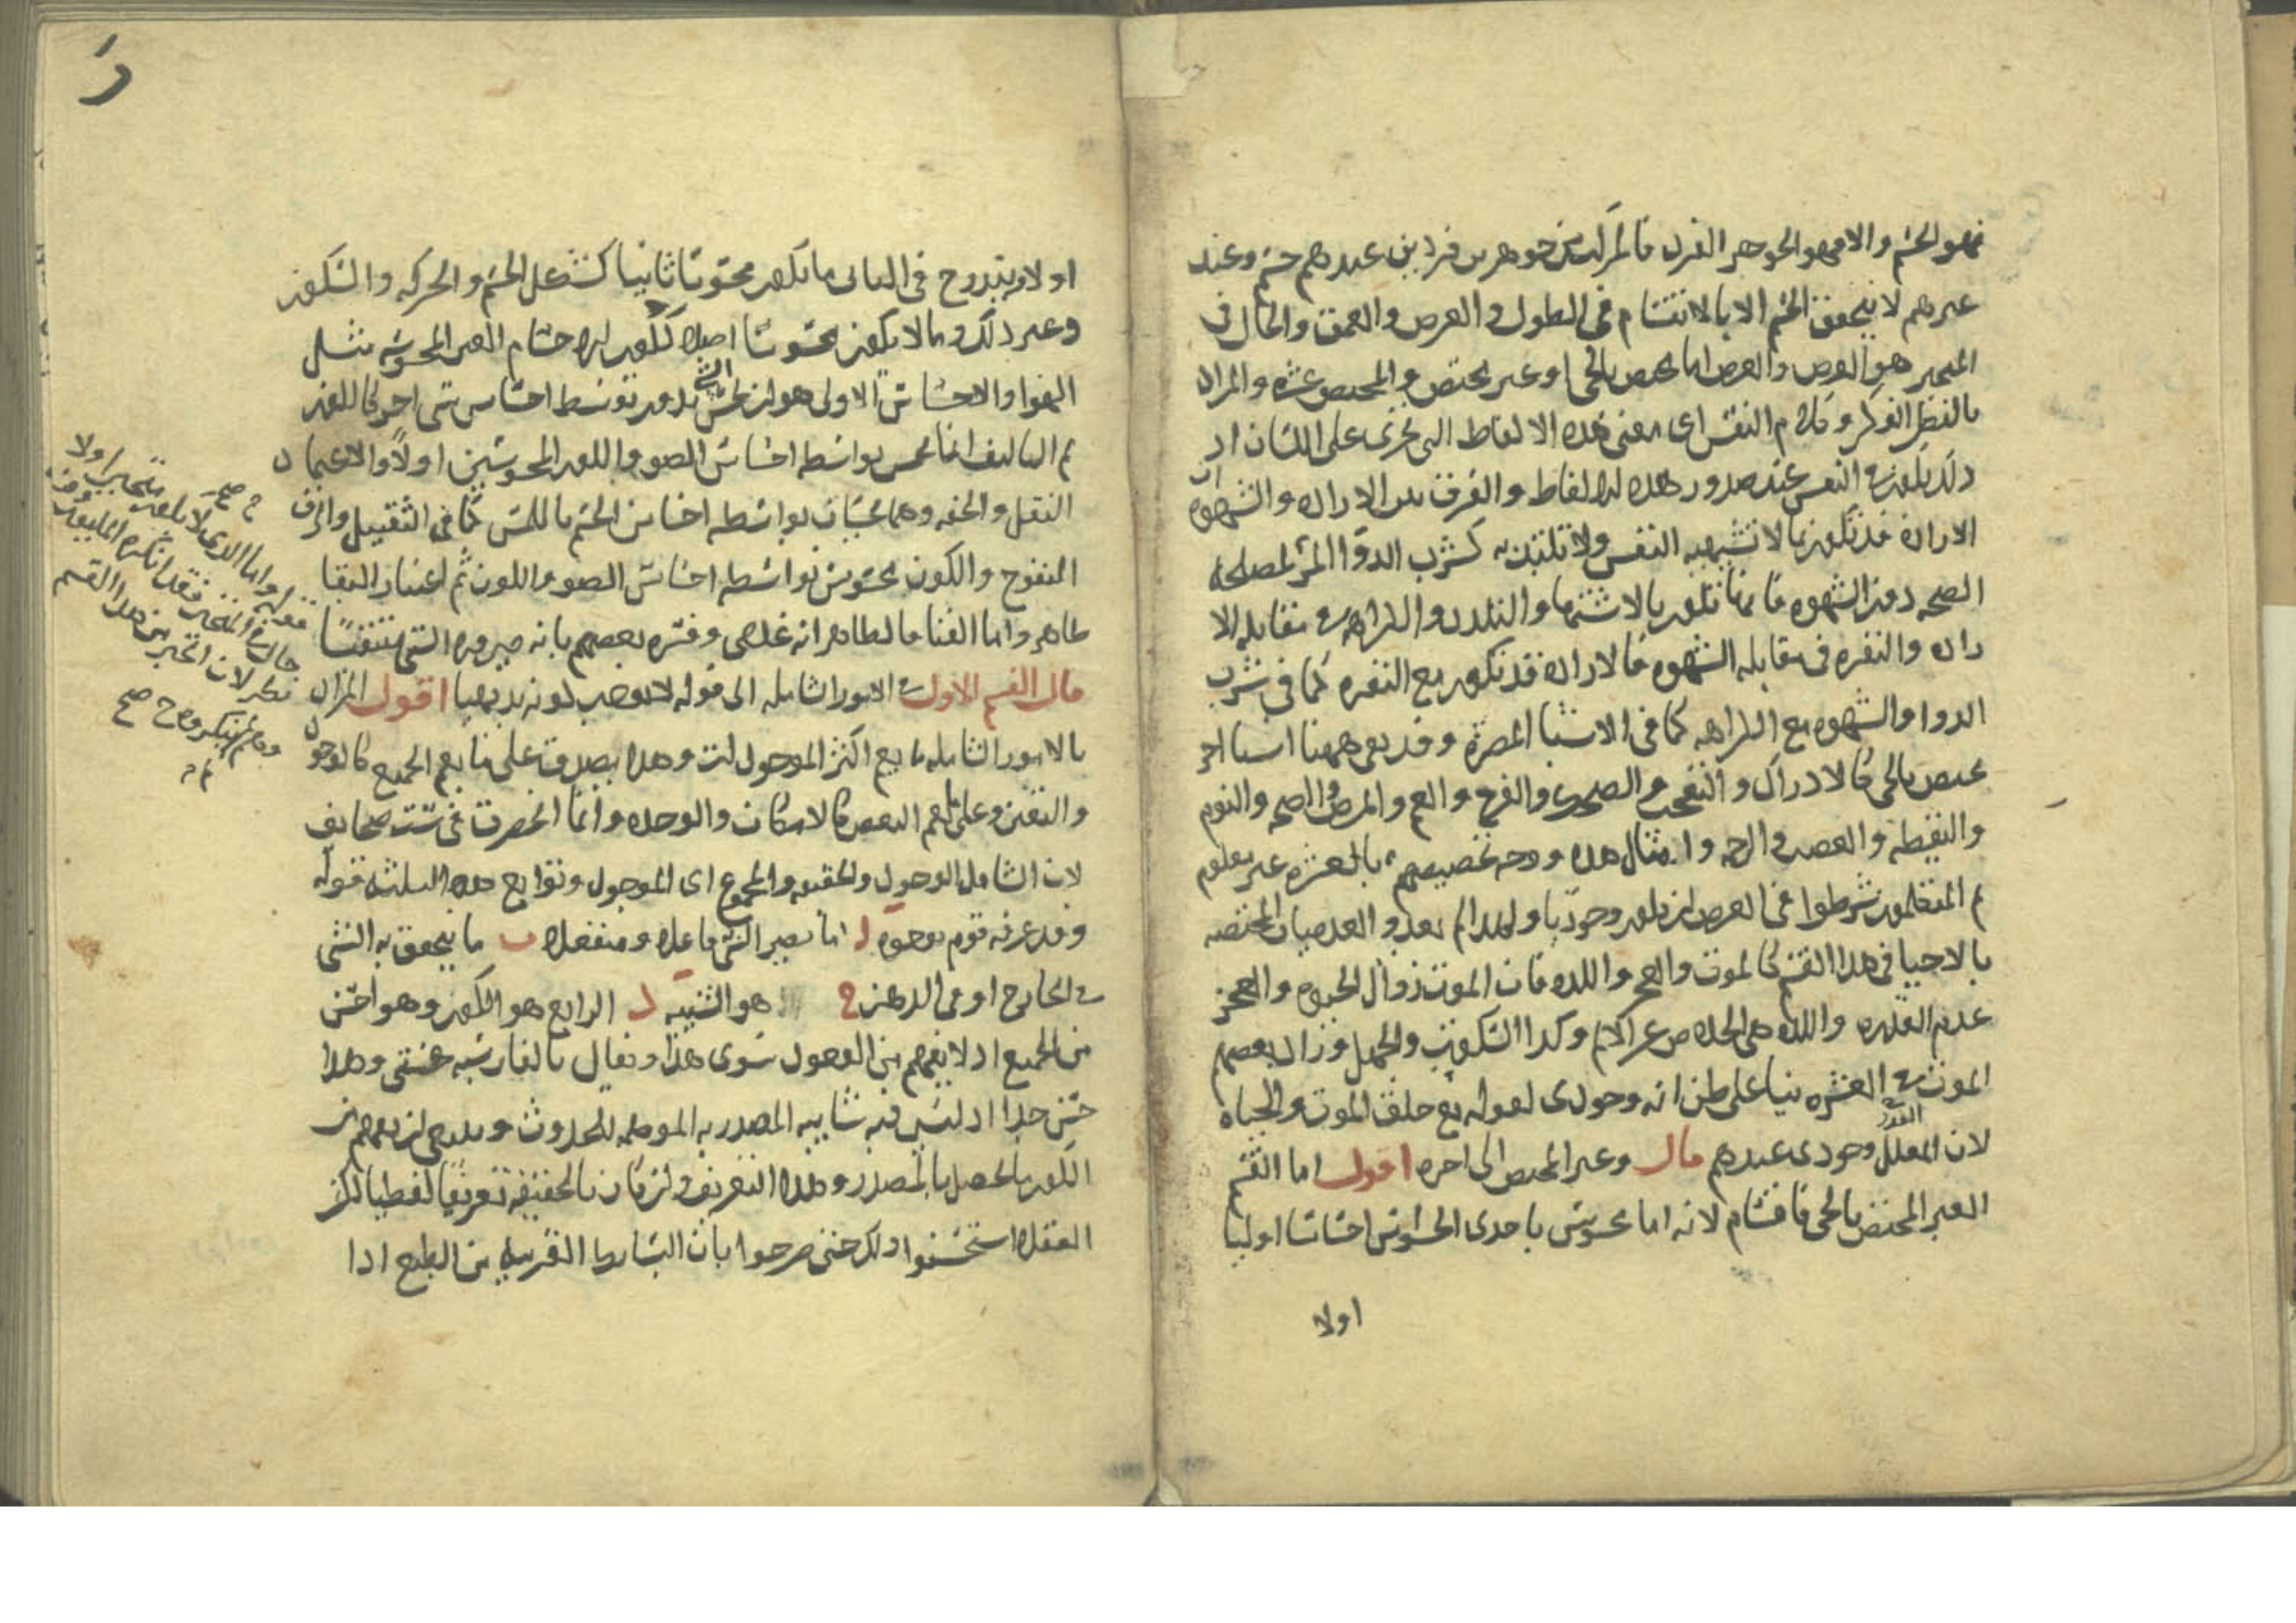 فهو الجسم والا فهو الجوهر الفرد فالمركب من جوهرين فردين عندهم جسم وعند
غيرهم لا يتحقق الجسم الا بالانقسام في الطول والعرض والعمق والحال في
المتحيز هو العرض والعرض اما مختص بالحي او غير مختص والمختص عشرة والمراد
بالنظر الفكر وكلام النفس اي معنى هذه الالفاظ التي تجري على اللسان اذ
ذلك يكون في النفس عند صدور هذه الالفاظ والفرق بين الارادة والشهوة ان
الارادة قد تكون بما لا تشتهيه النفس ولا تلتذ به كشرب الدوا المر لمصلحة
الصحة دون الشهوة فانها تكون بالاشتها والتلذذ والكراهة في مقابلة الا
رادة والنفرة في مقابلة الشهوة فالارادة قد تكون مع النفرة كما في شرب
الدوا والشهوة مع الكراهة كما في الاشيا المضرة وقد بقي ههنا اشيا اخر
تختص بالحي كالادراك والتعجب والضحك والفرح والغم والمرض والصحة والنوم
واليقظة والغضب والرحمة وامثال هذه ووجه تخصيصهم بالعشرة غير معلوم
ثم المتكلمون شرطوا في العرض ان يكون وجوديا ولهذا لم يعدوا العدميات المختصة
بالاحيا في هذا القسم كالموت والعجز واللذة فان الموت زوال الحيوة والعجز
عدم القدرة واللذة هي الخلاص عن الالم وكذا السكون والجهل وزاد بعضهم
الموت في العشرة بنيا على ظن انه وجودي لقوله تع خلق الموت والحياة
لان المعلل وجودي عندهم قال وغير المختص الى اخره اقول اما القسم
الغير المختص بالحي فاقسام لانه اما محسوس باحدى الحواس احساسا اوليا
اولا
اولا ويندرج في الثاني ما يكون محسوسا ثانيا كشكل الجسم والحركة والسكون
وغير ذلك وما لا يكون محسوسا اصلا ككون الاجسام الغير المحسوسة مثل
الهوا والاحساس الاولى هو ان يحس الشي بدون توسط احساس شي اخر كاللون
ثم التاليف انما يحس بواسطة احساس الضو واللون المحسوسين اولا والاعتماد
الثقل والخفة وهما يحسان بواسطة احساس الجسم باللمس كما في الثقيل والزق
المنفوخ والكون محسوس بواسطة احساس الضو واللون ثم اعتبار البقا
ظاهر واما الفنا فالظاهر انه عدمي وفسره بعضهم بانه صيرورة الشي منتفيا
قال القسم الاول في الامور الشاملة الى قوله لا يوجب كونه بديهيا اقول المراد
بالامور الشاملة ما يعم اكثر الموجودات وهذا يصدق على ما يعم الجميع كالوجود
والتعين وعلى ما يعم البعض كالامكان والوحدة وانما انحصرت في ست صحايف
لان الشامل الوجود والحقيقة والمجموع اي الموجود وتوابع هذه الثلثة قوله
وقد عرفه قوم بوجوه ا ما يصير الشي فاعلا ومنفعلا ب ما يتحقق به الشي
في الخارج او في الذهن ج هو الشيئية د الرابع هو الكون وهو احسن
من الجميع اذ لا يفهم من الوجود سوى هذا ويقال بالفارسية هستي وهذا
حسن جدا اذ ليس فيه شايبة المصدرية الموهمة للحدوث وينبغي ان يفهم من
الكون الحاصل بالمصدر وهذا التعريف وان كان بالحقيقة تعريفا لفظيا لكن
العقلا استحسنوا ذلك حتى صرحوا بان البسايط القريبة من الطبع اذا
قوله واما الذي لا يكون متحيزا ولا
حالا في المتحيز فقد انكره المتكلمون
لان اخير من هذا القسم
صح